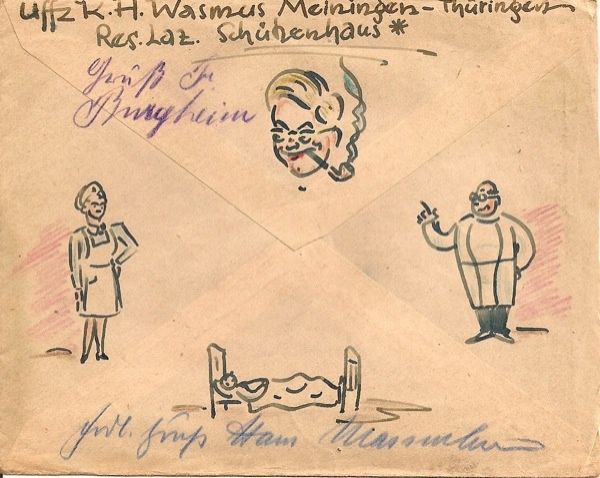 Uffz K. H. Wasmus Meiningen-Thüringen
Res. Laz. Schützenhaus *
Gruß Fr.
Burgheim
frdl. Gruß Hans